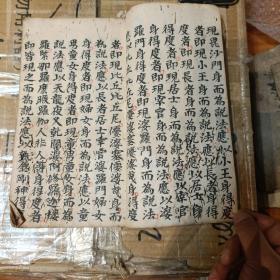 現毘沙門身而為說法應以小王身得度
者即現小王身而為說法應以長者
身得度者即現長者身而為說法應以居士
身得度者即現居士身而為說法應以宰官
身得度者即現宰官身而為說法應以婆
羅門身得度者即現婆羅門身而為說法
應以比丘比丘尼優婆塞優婆夷身得度
者即現比丘比丘尼優婆塞優婆夷身而
為說法應以長者居士宰官婆羅門婦女
身得度者即現婦女身而為說法應以童
男童女身得度者即現童男童女身而為
說法應以天龍夜叉乾闥婆阿修羅迦樓
羅緊那羅摩睺羅伽人非人等身得度者
即皆現之而為說法應以執金剛神得